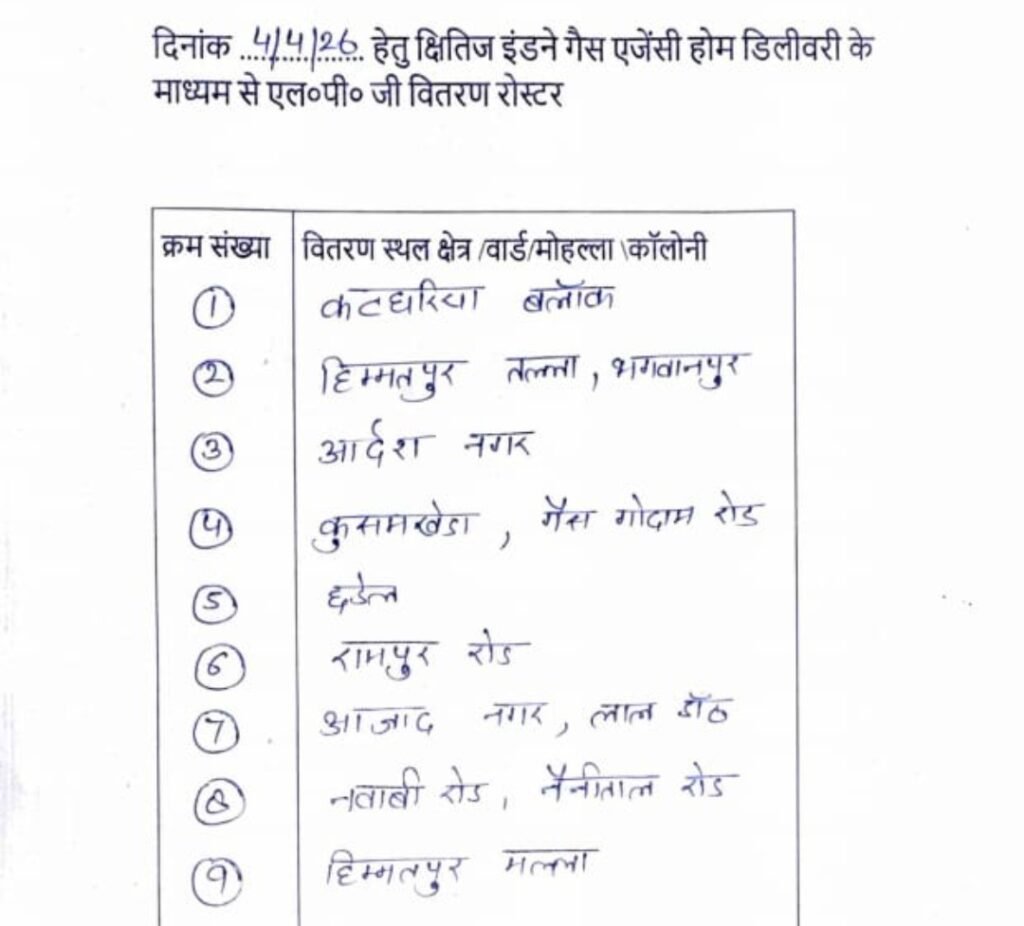 दिनांक 4/4/26 हेतु क्षितिज इंडने गैस एजेंसी होम डिलीवरी के
माध्यम से एल०पी० जी वितरण रोस्टर
क्रम संख्या वितरण स्थल क्षेत्र /वार्ड/मोहल्ला \कॉलोनी
1 कटघरिया ब्लॉक
2 हिम्मतपुर तल्ला, भगवानपुर
3 आर्दश नगर
4 कुसमखेडा, गैस गोदाम रोड
5 छडेल
6 रामपुर रोड
7 आजाद नगर, लाल डॉठ
8 नवाबी रोड, नैनीताल रोड
9 हिम्मतपुर मल्ला